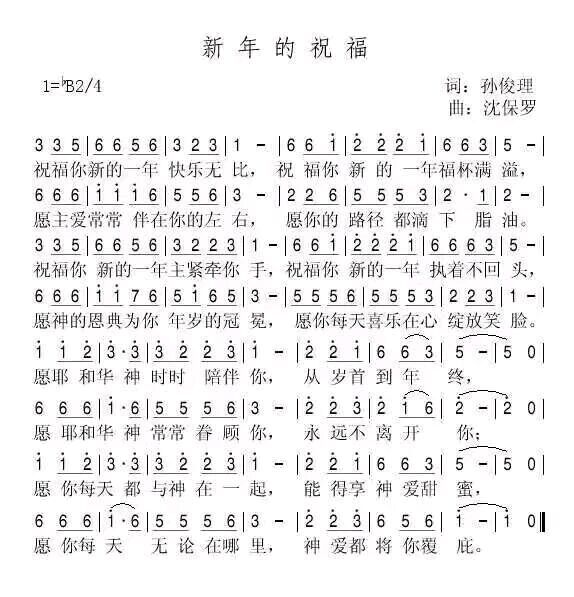 新年的祝福
1=♭B2/4 词：孙俊理
曲：沈保罗
3 3 5 | 6 6 5 6 | 3 2 3 | 1 - | 6 6 i | 2 2 2 i | 6 6 3 | 5 - |
祝福你新的一年 快乐无 比， 祝 福你 新 的 一年福杯满 溢，
6 6 6 | i i i 6 | 5 5 6 | 3 - | 2 2 6 | 5 5 5 3 | 2 · 1 | 2 - |
愿主爱常常 伴在你的左 右， 愿你的 路径 都滴 下 脂油。
3 3 5 | 6 6 5 6 | 3 2 3 | 1 - | 6 6 i | 2 2 2 i | 6 6 5 | 3 - |
祝福你 新的一年主紧牵你 手，祝福你 新的一年 执着不回 头，
6 6 6 | i i 7 6 | 5 i 6 5 | 3 - | 5 5 6 | 5 5 5 3 | 2 2 3 | 1 - |
愿神的恩典为你 年岁的冠 冕， 愿你每天喜乐在心 绽放笑 脸。
i i 2 | 3 · 3 | 2 2 2 i | 2 - | 3 2 3 | i 2 i | 6 6 3 | 5 - | 5 0 |
愿耶 和华 神 时时 陪伴 你， 从 岁首 到 年 终，
6 6 6 | i · 6 | 5 5 5 6 | 3 - | 2 2 3 | 2 2 3 | i 6 | 2 - | 2 0 |
愿 耶和华 神 常常 眷 顾 你， 永 远不 离 开 你；
i i 2 | 3 · 3 | 2 2 2 i | 2 - | 3 2 3 | i 2 i | 6 6 3 | 5 - | 5 0 |
愿 你每天 都 与神 在 一 起， 能 得享 神 爱甜 蜜，
6 6 6 | i · 6 | 5 5 5 6 | 3 - | 2 2 3 | 5 6 | i - | i 0 ‖
愿 你每 天 无论 在哪 里， 神 爱都 将 你覆 庇。